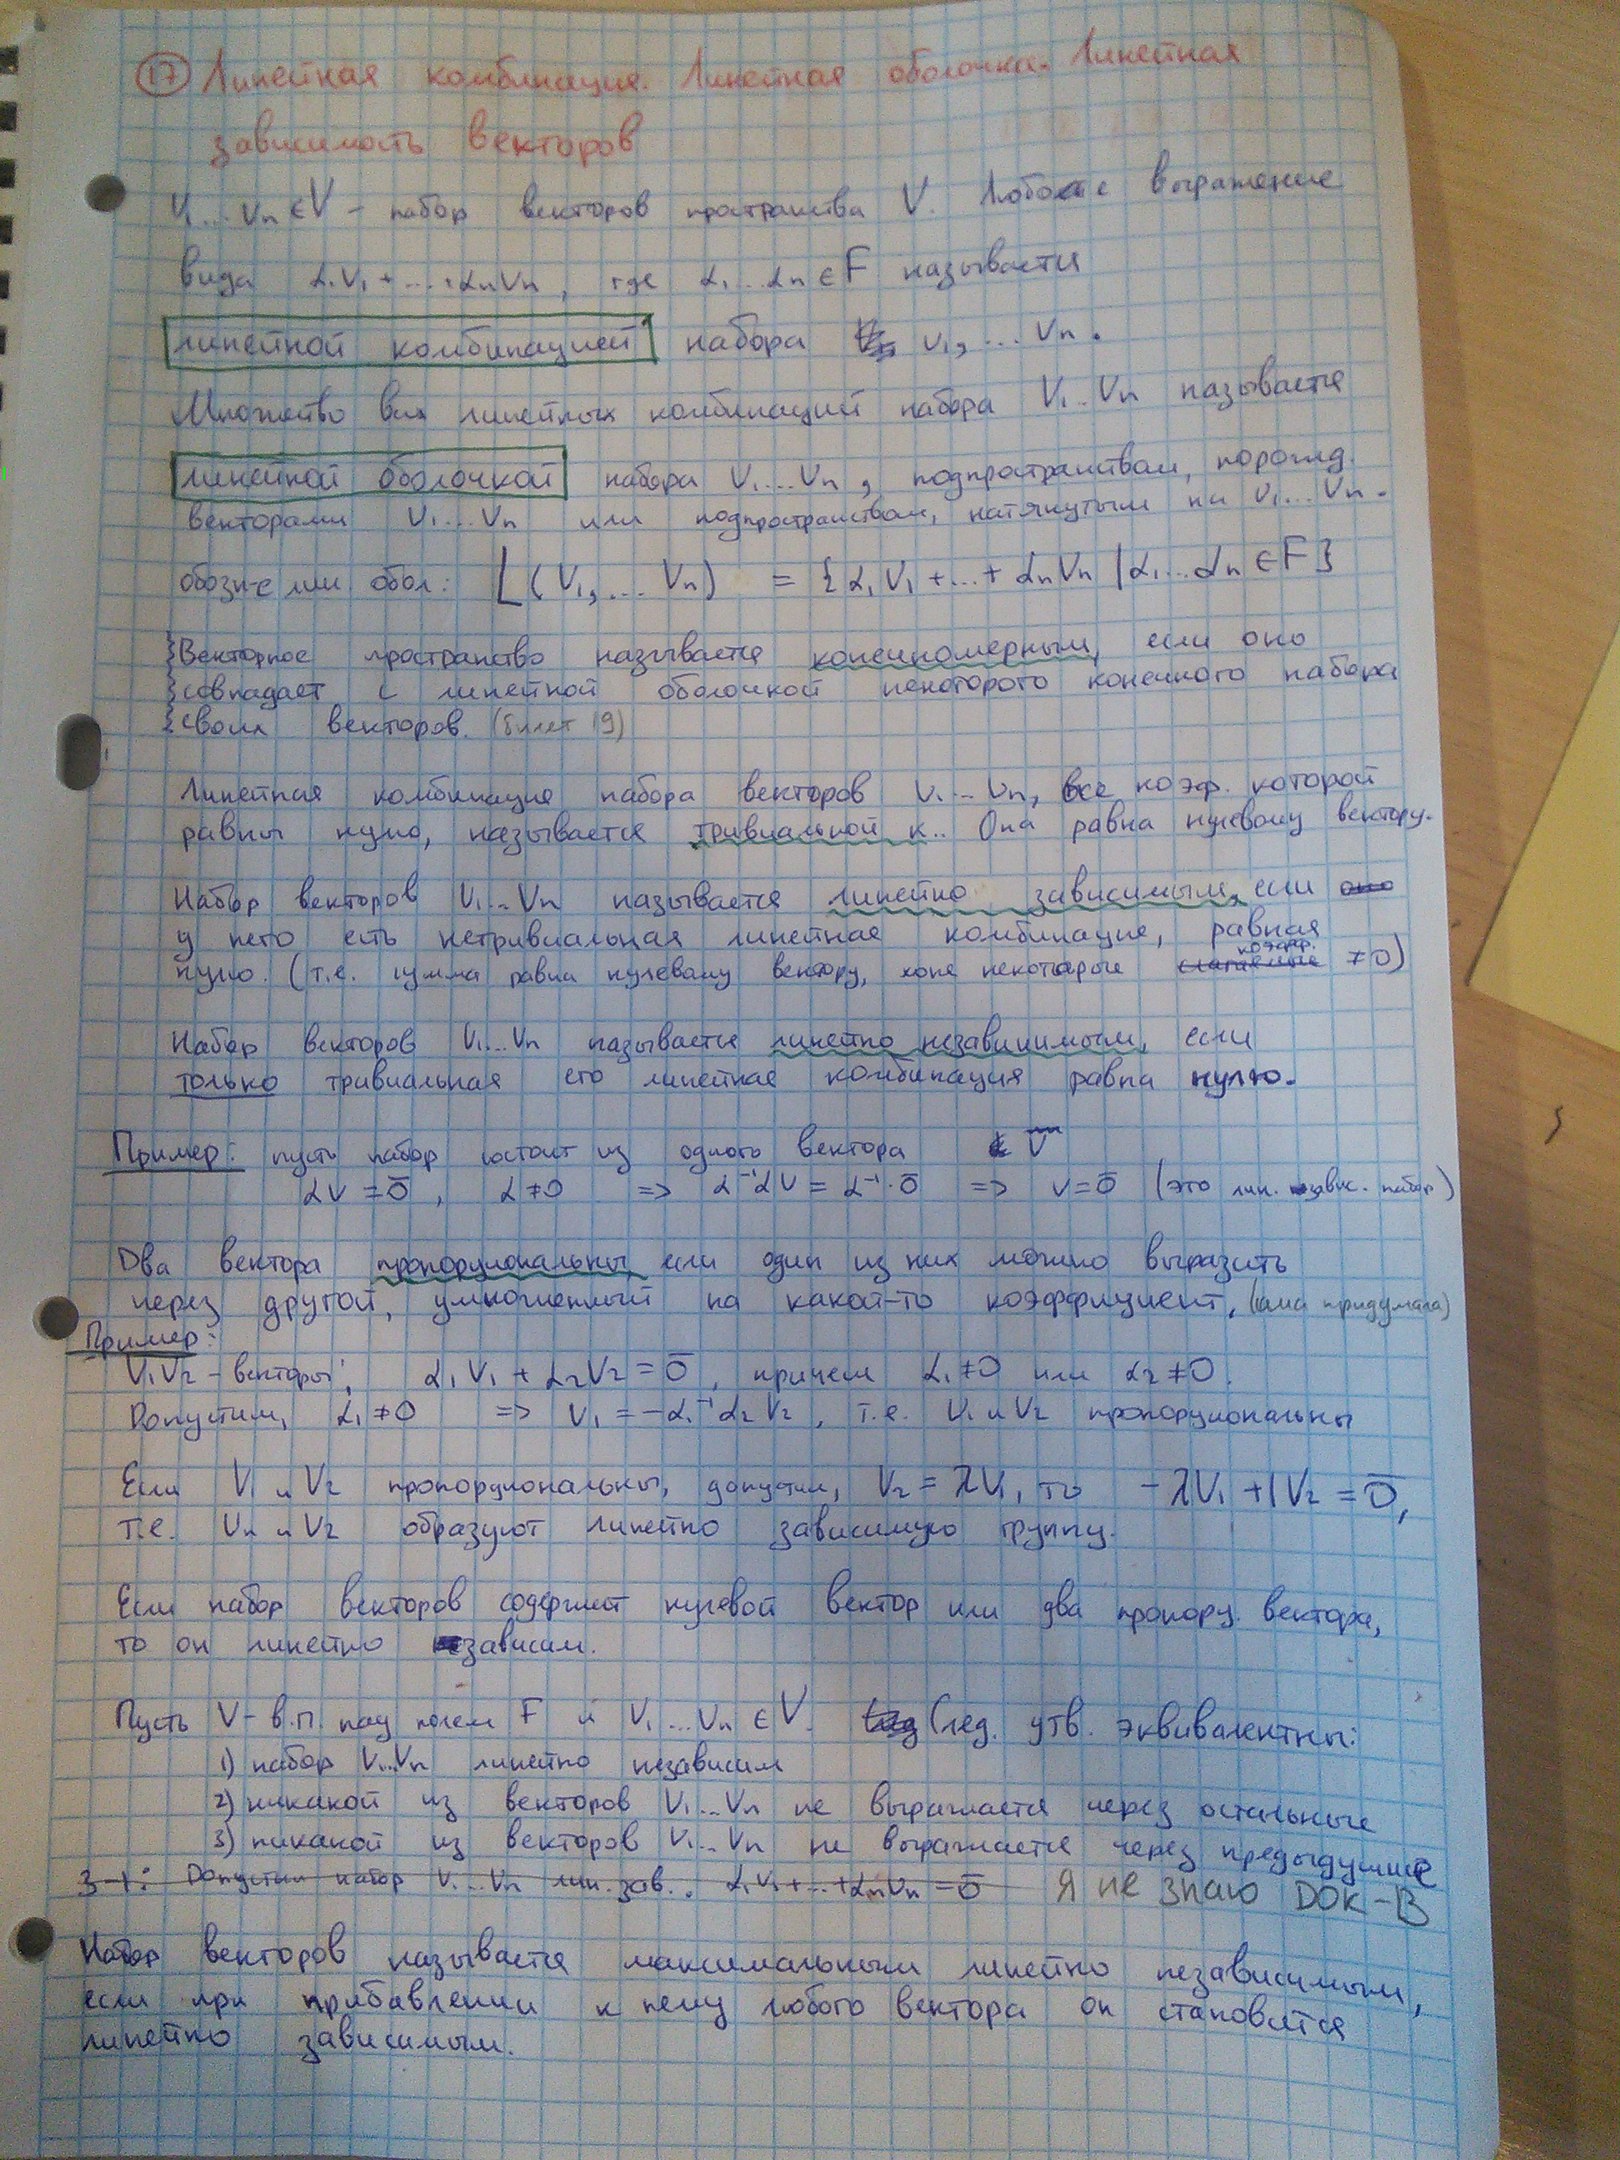 17 Линейная комбинация. Линейная оболочка. Линейная
зависимость векторов
V₁...Vn ∈ V - набор векторов пространства V. Любое выражение
вида α₁V₁+...+αnVn, где α₁...αn ∈ F называется
линейной комбинацией набора V₁,...Vn.
Множество всех линейных комбинаций набора V₁..Vn называется
линейной оболочкой набора V₁...Vn, подпространством, порожд.
векторами V₁...Vn или подпространством, натянутым на V₁...Vn.
обозн-е лин обол: L(V₁,...Vn) = {α₁V₁+...+αnVn | α₁...αn ∈ F}
Векторное пространство называется конечномерным, если оно
совпадает с линейной оболочкой некоторого конечного набора
своих векторов. (билет 19)
Линейная комбинация набора векторов V₁...Vn, все коэф. которой
равны нулю, называется тривиальной к.. Она равна нулевому вектору.
Набор векторов V₁...Vn называется линейно зависимым, если
у него есть нетривиальная линейная комбинация, равная
нулю. (т.е. сумма равна нулевому вектору, хотя некоторые коэфф. ≠0)
Набор векторов V₁...Vn называется линейно независимым, если
только тривиальная его линейная комбинация равна нулю.
Пример: пусть набор состоит из одного вектора V
αV = 0̄, α≠0 => α⁻¹αV = α⁻¹·0̄ => V=0̄ (это лин. завис. набор)
Два вектора пропорциональны, если один из них можно выразить
через другой, умноженный на какой-то коэффициент, (сама придумала)
Пример:
V₁V₂ - векторы; α₁V₁+α₂V₂=0̄, причем α₁≠0 или α₂≠0.
Допустим, α₁≠0 => V₁=-α₁⁻¹α₂V₂, т.е. V₁ и V₂ пропорциональны
Если V₁ и V₂ пропорциональны, допустим, V₂=λV₁, то -λV₁+1V₂=0̄,
т.е. Vn и V₂ образуют линейно зависимую группу.
Если набор векторов содержит нулевой вектор или два пропорц. вектора,
то он линейно зависим.
Пусть V - в.п. над полем F и V₁...Vn ∈ V. След. утв. эквивалентны:
1) набор V₁...Vn линейно независим
2) никакой из векторов V₁...Vn не выражается через остальные
3) никакой из векторов V₁...Vn не выражается через предыдущие
3-1: Допустим набор V₁...Vn лин. зав.. α₁V₁+...+αnVn=0̄ Я НЕ ЗНАЮ ДОК-В
Набор векторов называется максимальным линейно независимым,
если при прибавлении к нему любого вектора он становится
линейно зависимым.